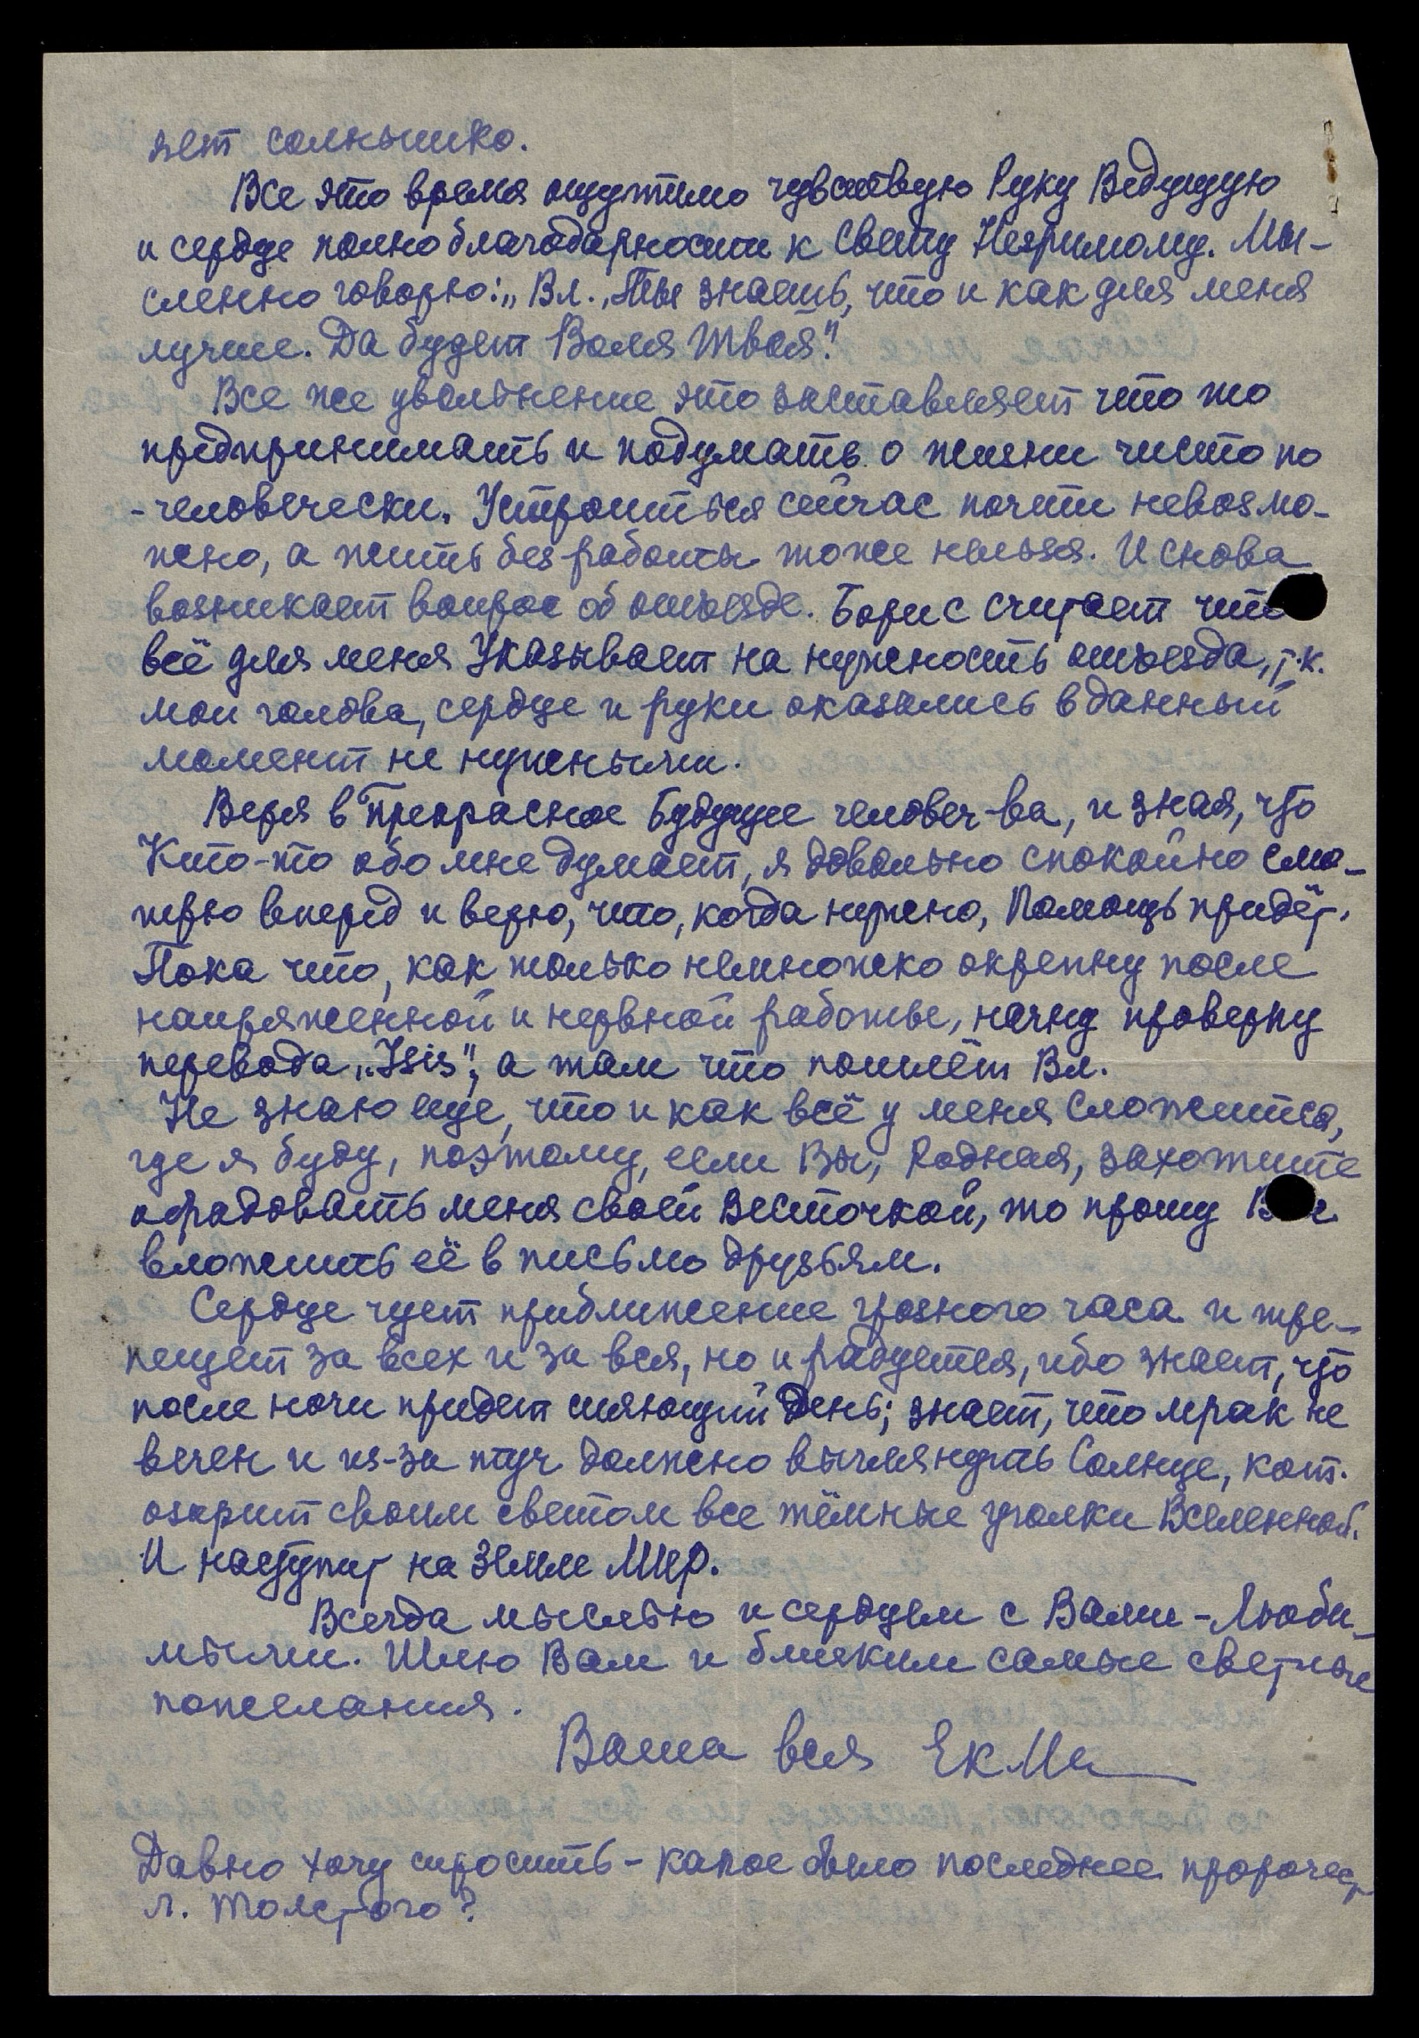 яет солнышко.
Все это время ощутимо чувствую Руку Ведущую
и сердце полно благодарности к Свету Незримому. Мы-
сленно говорю: „Вл., Ты знаешь, что и как для меня
лучше. Да будет Воля Твоя".
Все же увольнение это заставляет что то
предпринимать и подумать о жизни чисто по
-человечески. Устроиться сейчас почти невозмо-
жно, а жить без работы тоже нельзя. И снова
возникает вопрос об отъезде. Борис считает что
всё для меня Указывает на нужность отъезда, т.к.
мои голова, сердце и руки оказались в данный
момент не нужными.
Веря в Прекрасное Будущее человеч-ва, и зная, что
Кто-то обо мне думает, я довольно спокойно смо-
трю вперед и верю, что, когда нужно, Помощь придёт.
Пока что, как только немножко окрепну после
напряженной и нервной работы, начну проверку
перевода „Isis", а там что пошлёт Вл.
Не знаю еще, что и как всё у меня сложится,
где я буду, поэтому, если Вы, Родная, захотите
обрадовать меня своей Весточкой, то прошу
вложить её в письмо друзьям.
Сердце чует приближение грозного часа и тре-
пещет за всех и за вся, но и радуется, ибо знает, что
после ночи придет сияющий День; знает, что мрак не
вечен и из-за туч должно выглянуть Солнце, кот.
озарит своим светом все тёмные уголки Вселенной.
И наступит на Земле Мир.
Всегда мыслью и сердцем с Вами - Люби-
мыми. Шлю Вам и близким самые светлые
пожелания.
Ваша вся Ек М
Давно хочу спросить - какое было последнее пророчест
Л. Толстого?